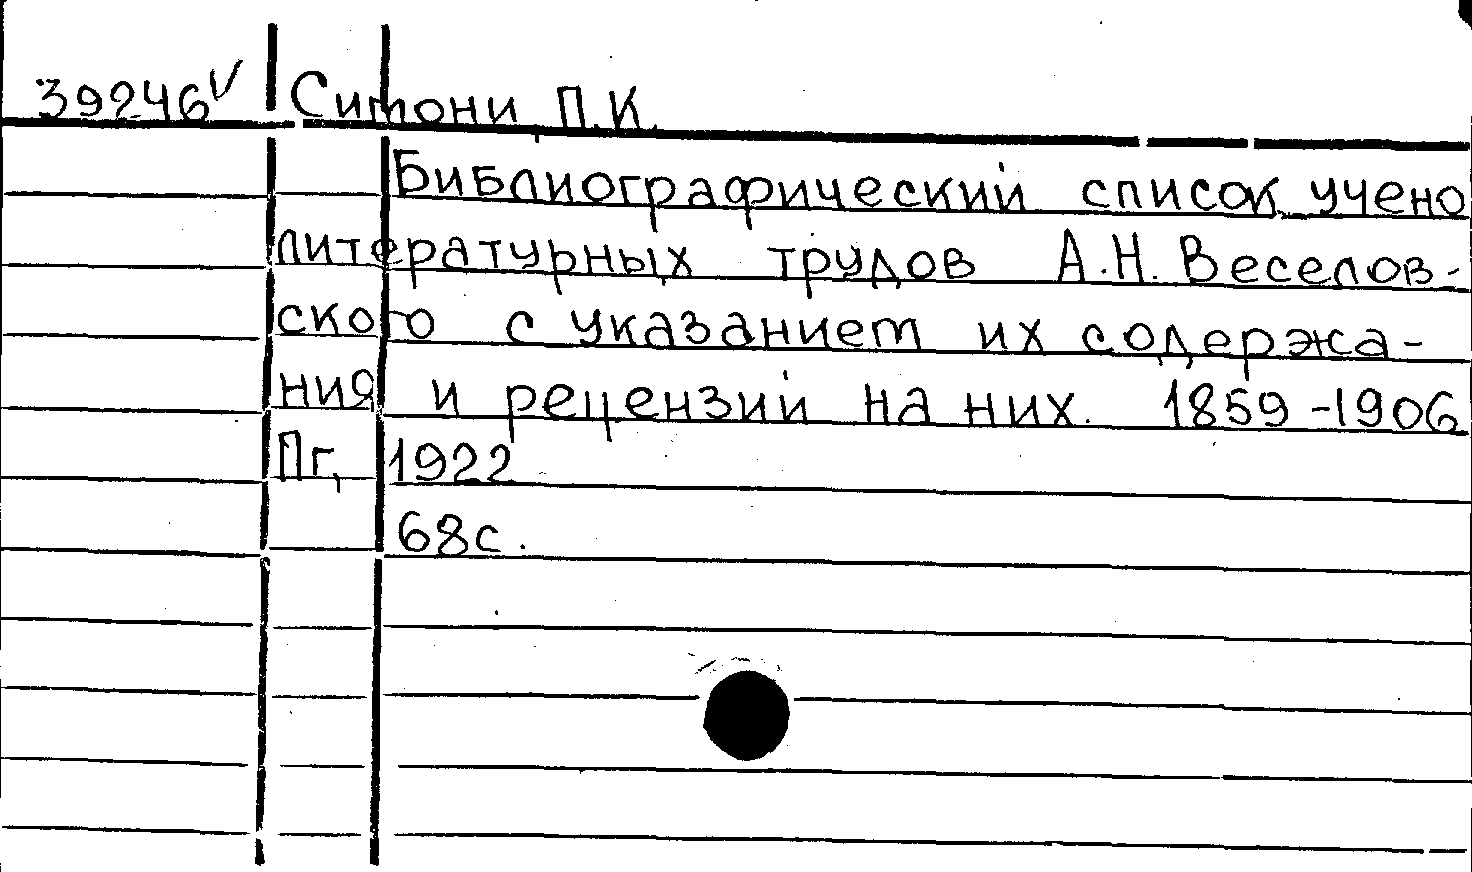 39246 V Симони П.К.
Библиографический список учено
литературных трудов А.Н. Веселов-
ского с указанием их содержа-
ния и рецензий на них. 1859-1906
Пг, 1922
68с.